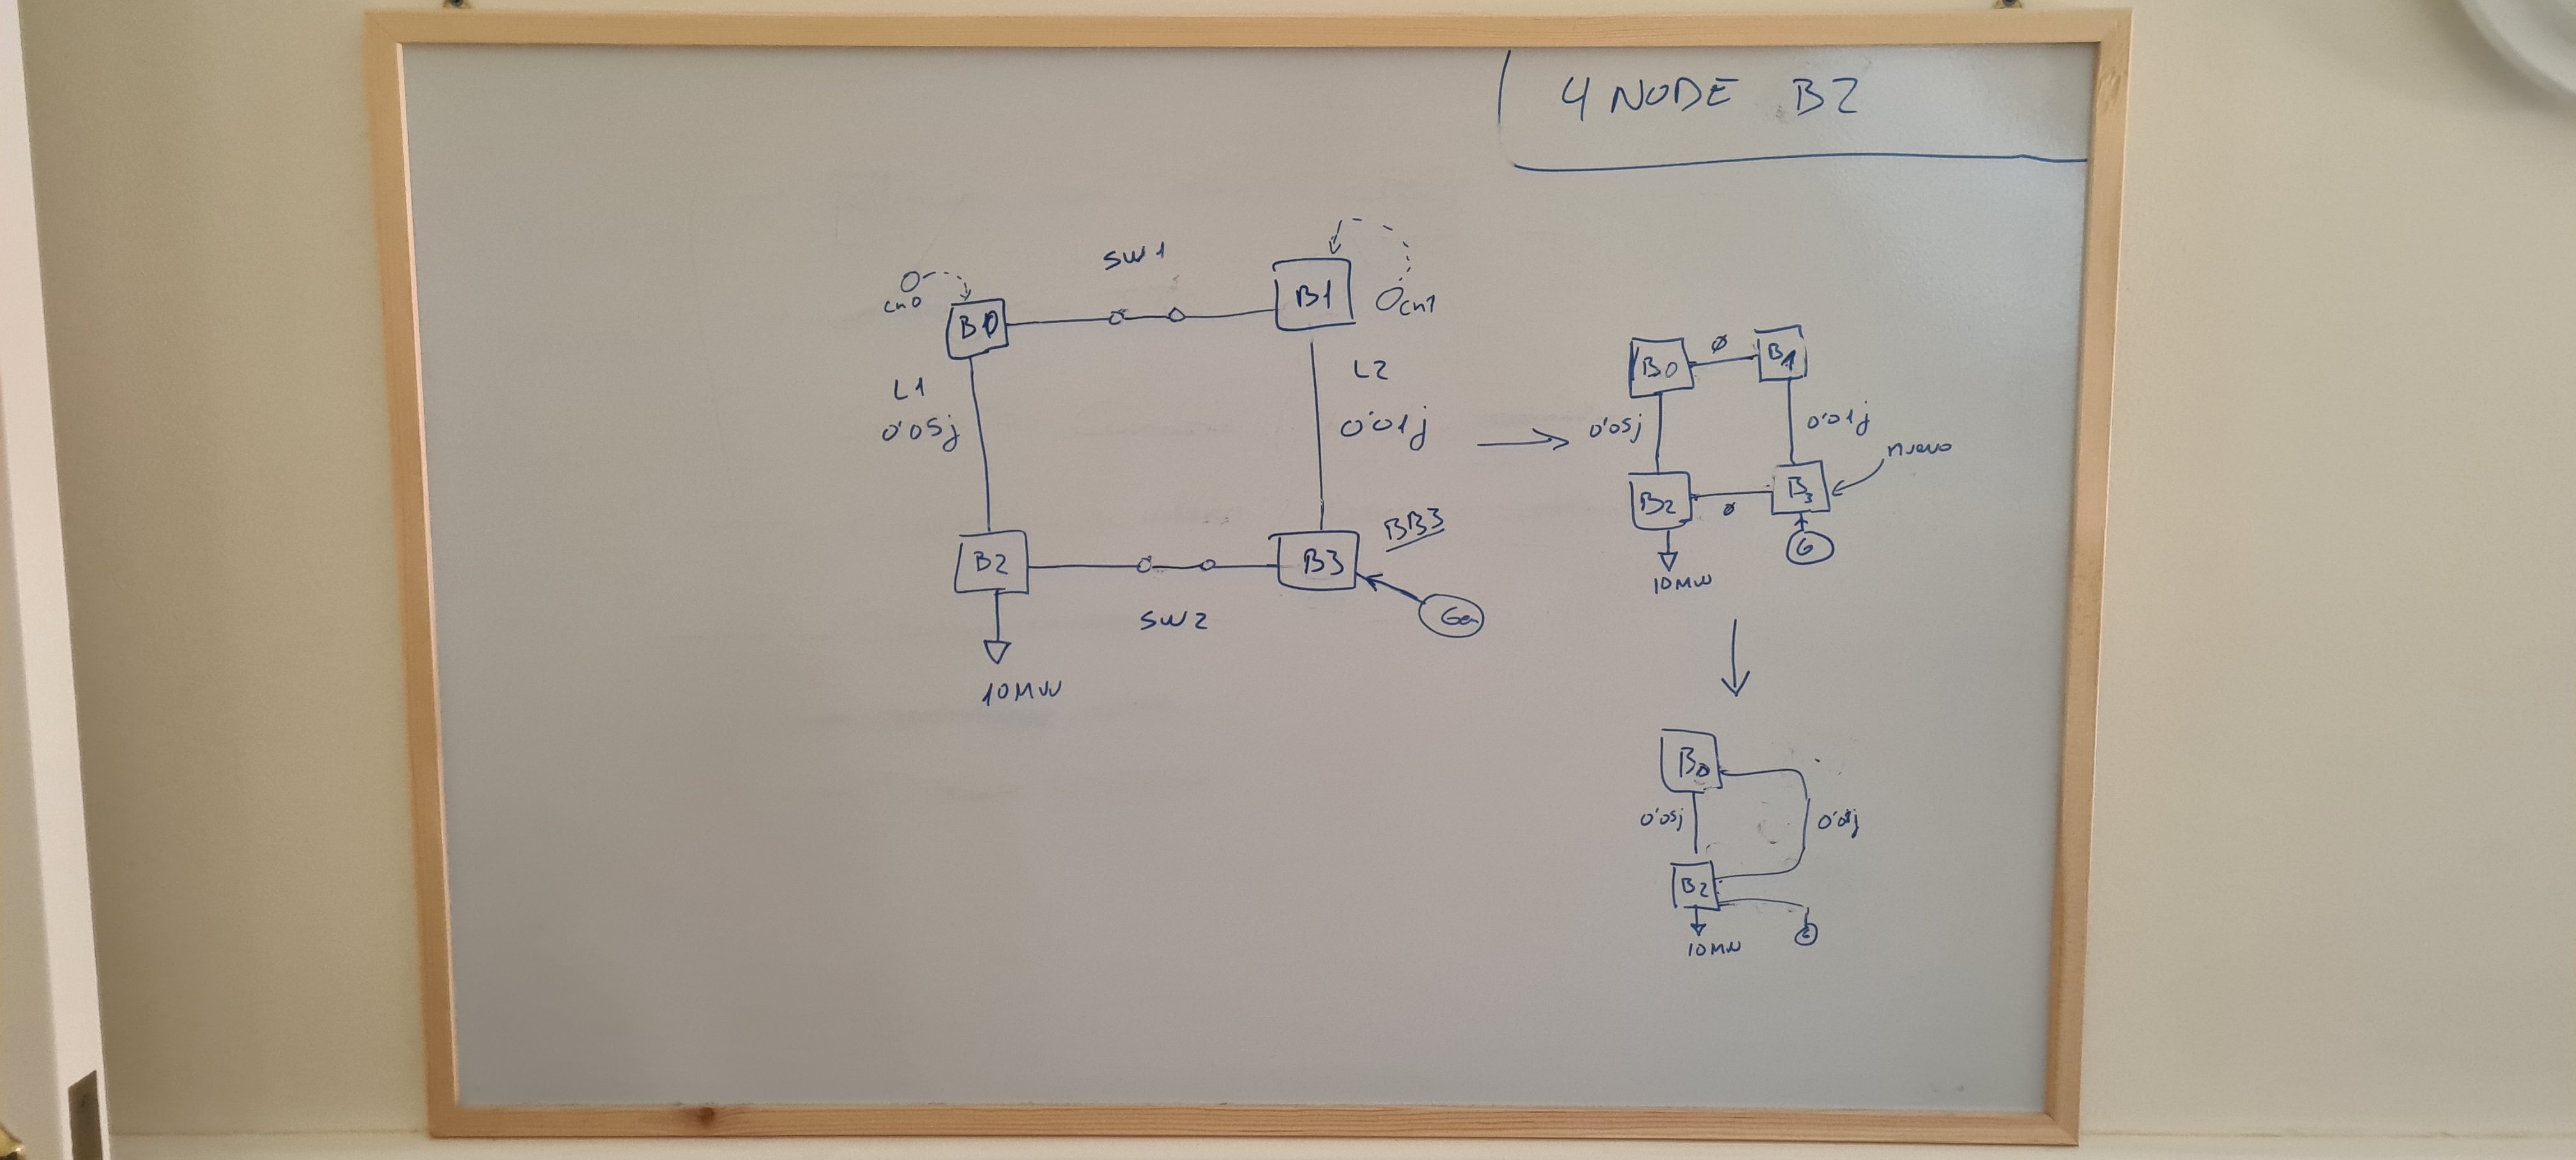 4 NODE B2
SW1
cn0
B0
B1
cn1
L1
0'05j
L2
0'01j
B2
B3
BB3
SW2
Ge
10MW
B0
Ø
B1
0'05j
0'01j
nuevo
B2
Ø
B3
G
10MW
B0
0'05j
0'01j
B2
10MW
G